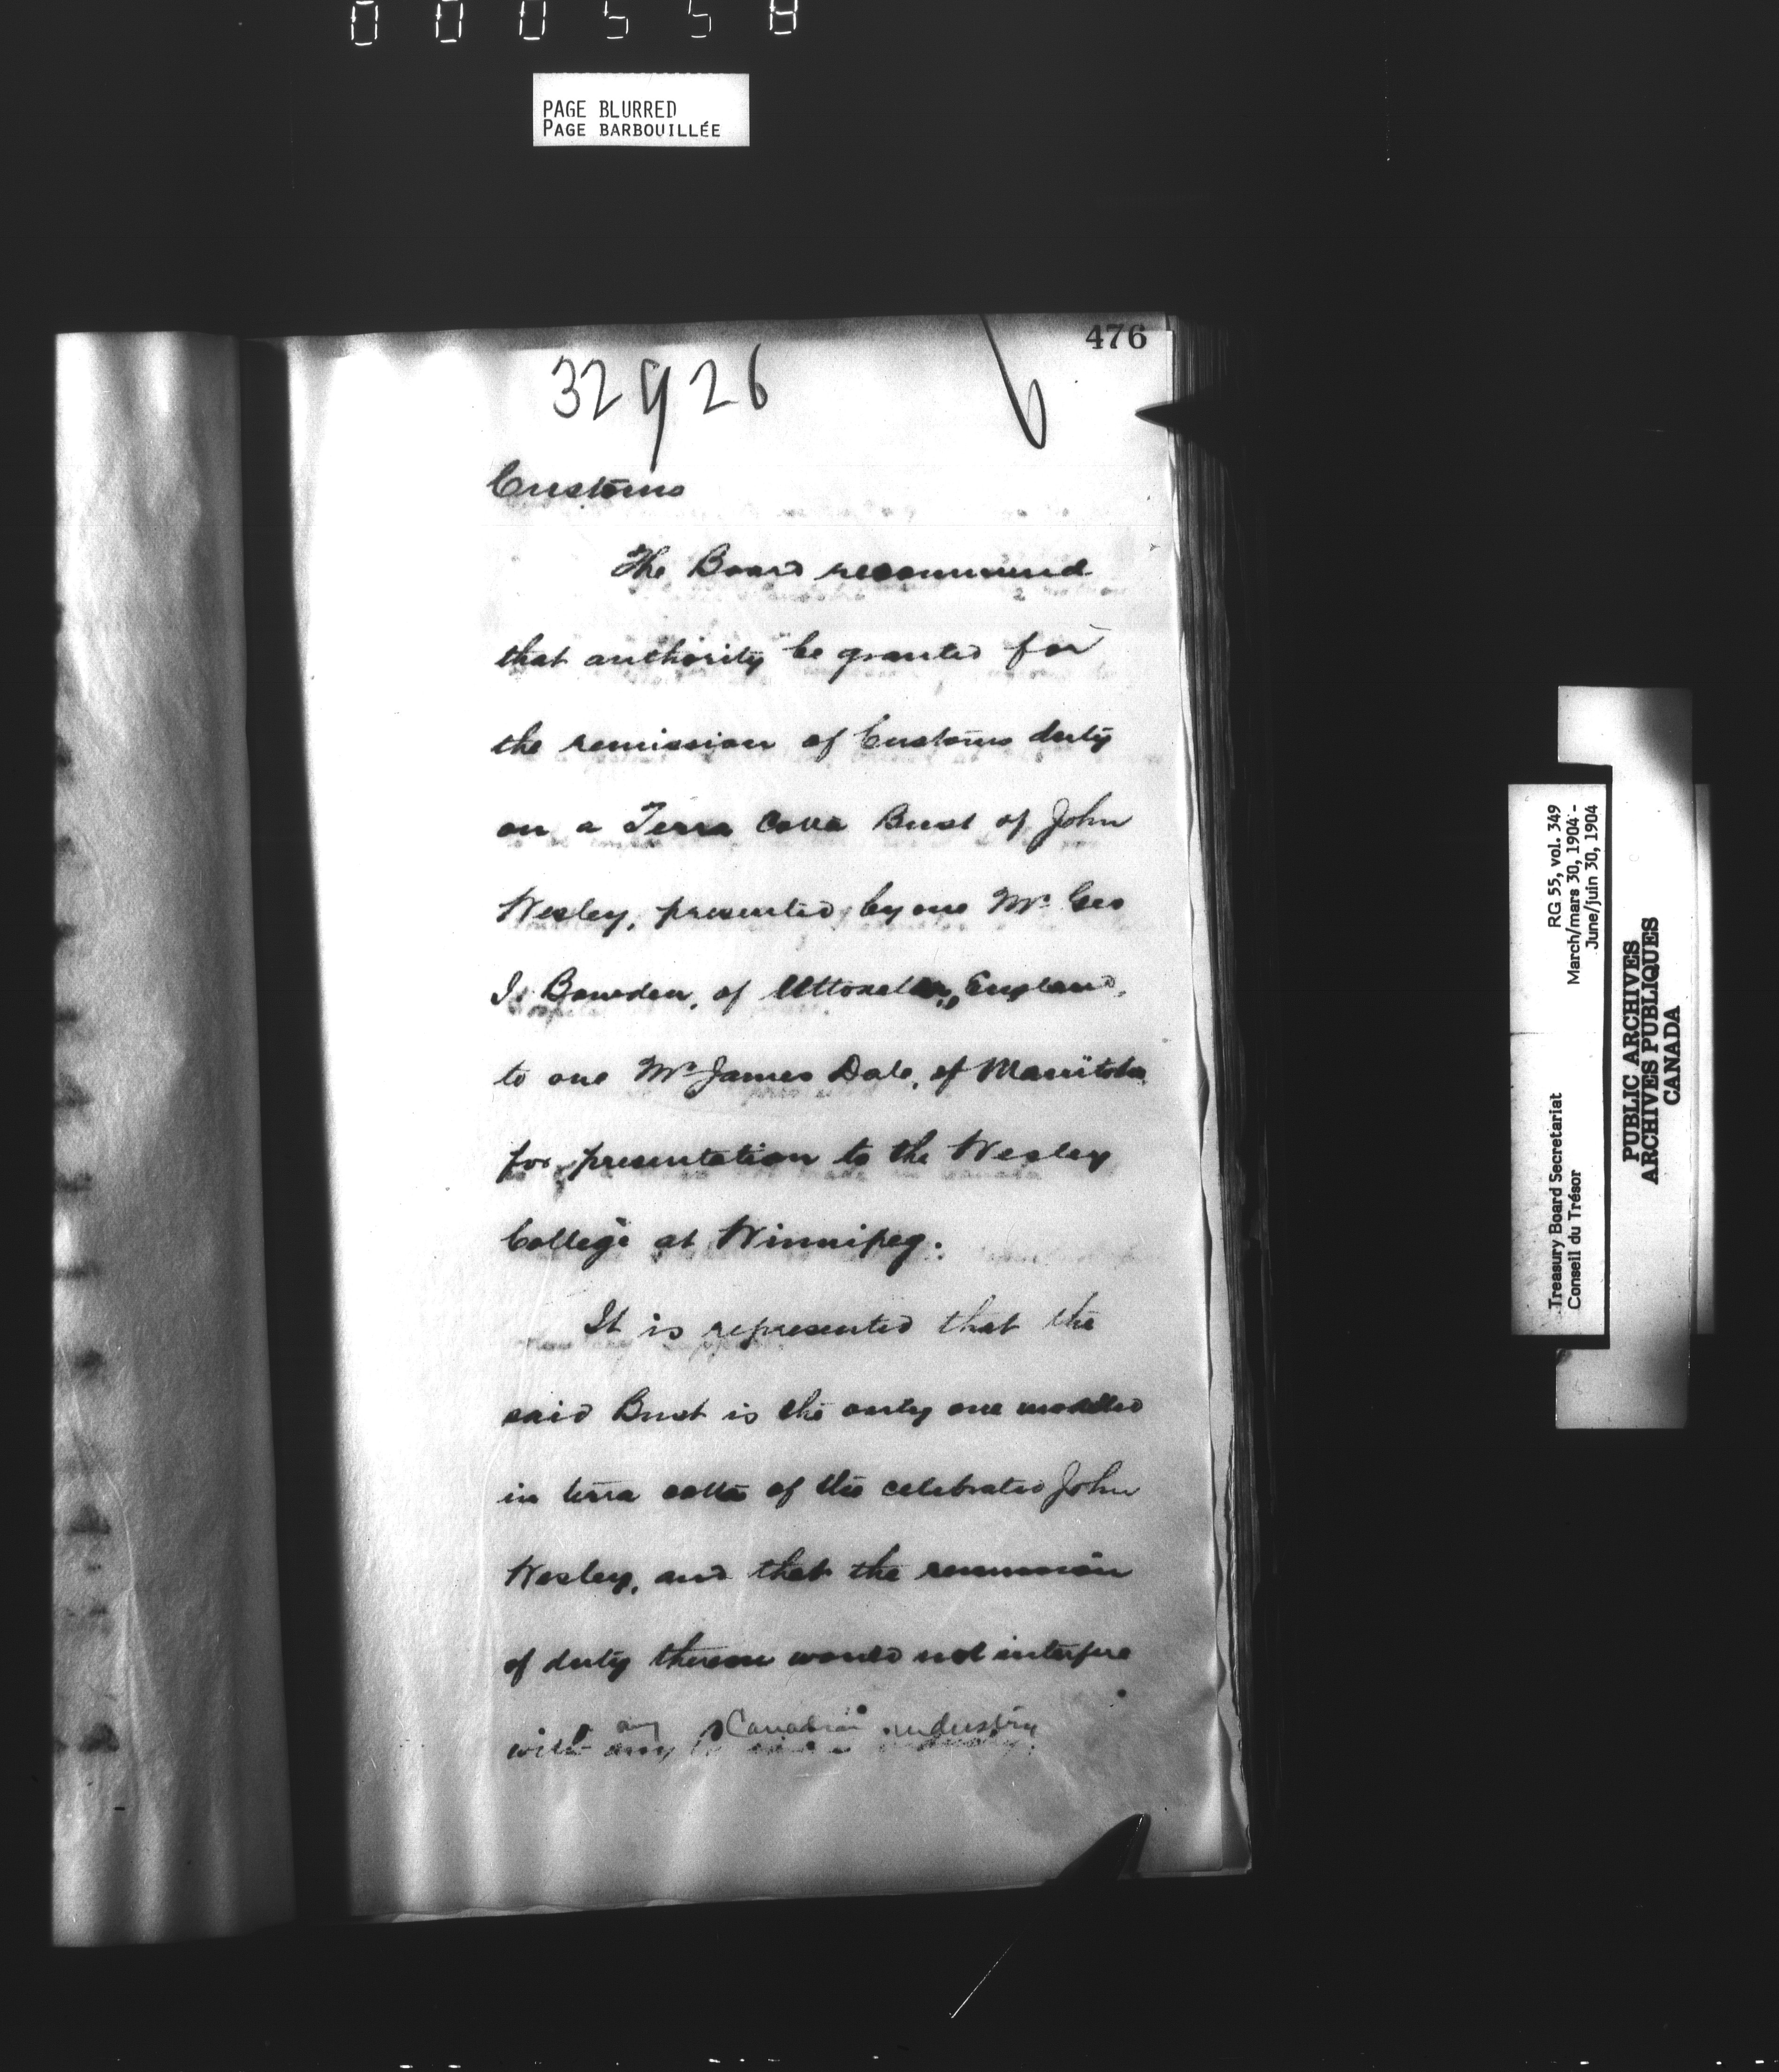 000558
PAGE BLURRED
PAGE BARBOUILLÉE
476
32926
Customs
The Board recommend
that authority be granted for
the remission of Customs duty
on a Terra Cotta Bust of John
Wesley, presented, by one Mr Geo
J. Bowden, of Uttoxeter, England,
to one Mr James Dale, of Manitoba,
for presentation to the Wesley
College at Winnipeg.
It is represented that the
said Bust is the only one modelled
in terra cotta of the celebrated John
Wesley, and that the remission
of duty thereon would not interfere
with any Canadian industry
RG 55, vol. 349
March/mars 30, 1904 -
June/juin 30, 1904
Treasury Board Secretariat
Conseil du Trésor
PUBLIC ARCHIVES
ARCHIVES PUBLIQUES
CANADA